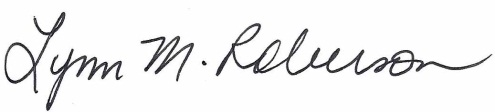 Lynn M. Roberson